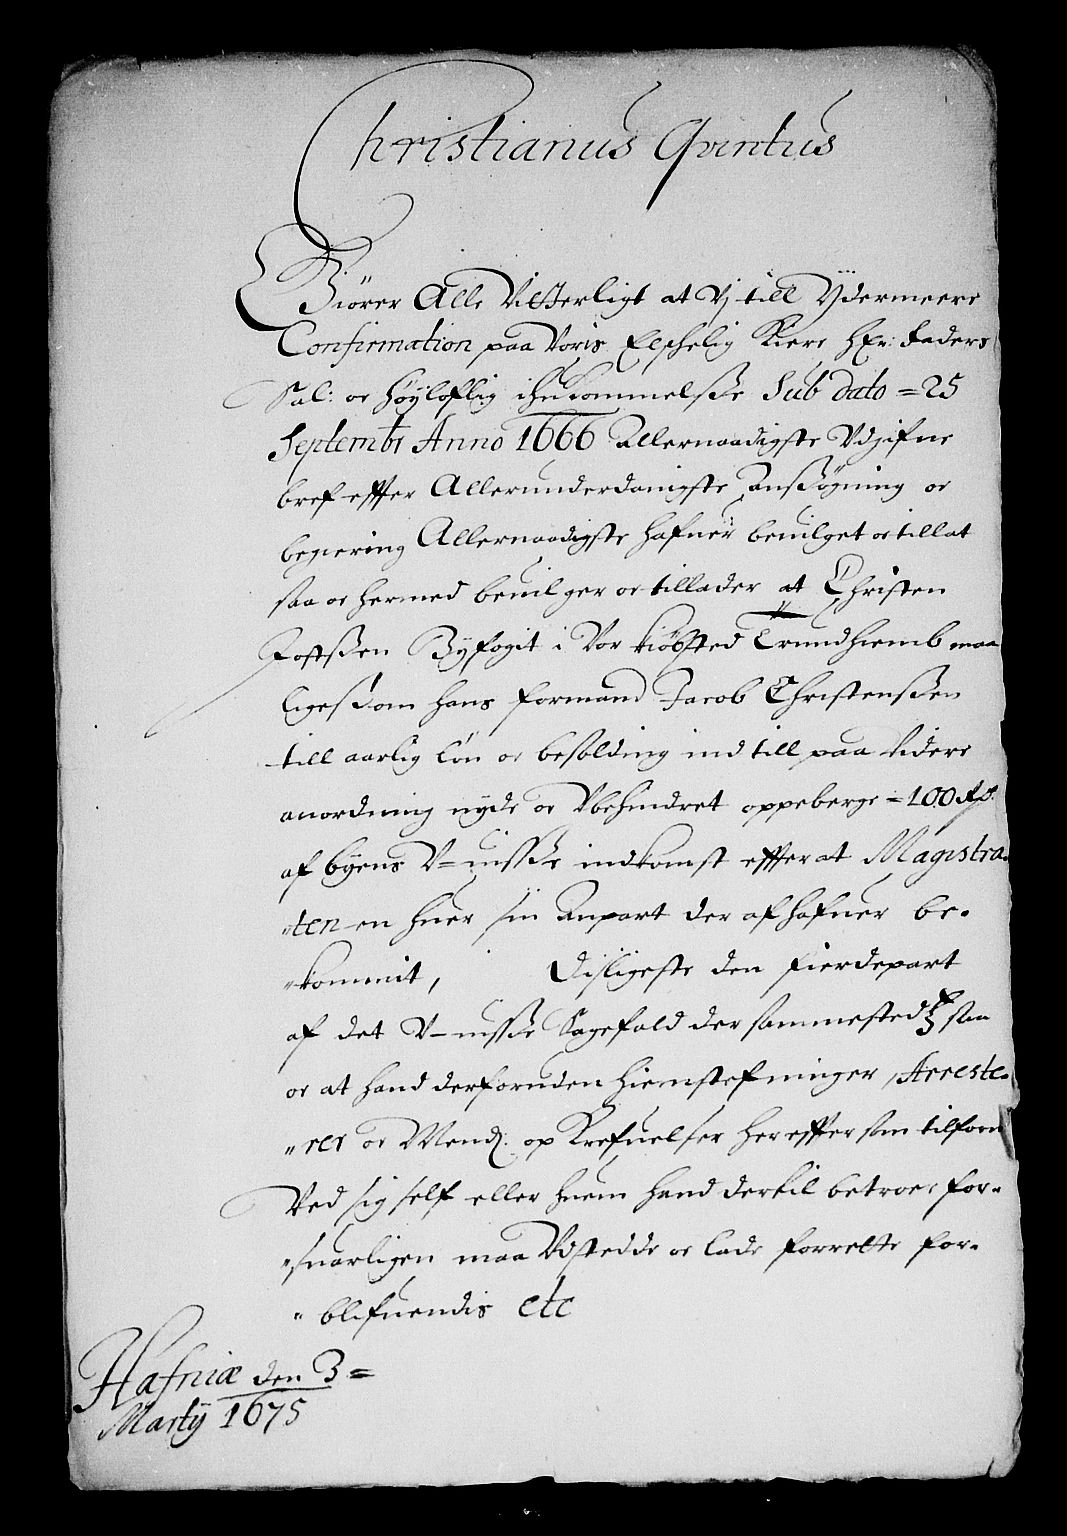 Christianus Qvintus
Giører Alle Vitterligt at Vj till Ydermeere
Confirmation paa Voris Elschelig Kiere hEr: Faders
Sal: oc høÿloflig ihukommelsße Sub dato = 25
Septembr Anno 1666 Allernaadigste Vdgifne
bref effter Allerunderdanigste Ansßøgning oc
begiering Allernaadigste hafuer beuilget oc tillat
saa oc hermed beuilger oc tillader at Christen
Jostsßen Byfogit i Vor kiøbsted Trundhiemb maa
ligesßom hans formand Jacob Christensßen
till aarlig løn oc besolding ind till paa videre
anordning nyde oc Vbehindret oppeberge = 100 Rd:
af byens V=uisße indkomst effter at Magistra=
"ten en huer sin Anpart der af hafuer be=
"kommit, Disligeste den fierdepart
af det V=uisße Sagefald der sammested saa
oc at hand derforuden hiemstefninger, Arreste=
"rer oc Mend: op Krefuelser her effter som tilforn
Ved sig self eller huem hand dertil betroer for=
"suarligen maa Vdstedde oc lade forrette for=
"blifuendis etc
Hafniæ den 3 =
Martÿ 1675